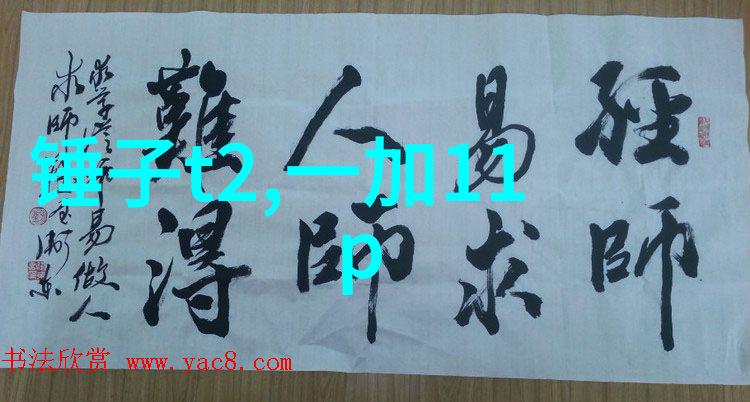 經師
易求
人師
難得
易做人
求師
锤子t2,一加11
p
书法欣赏 www.yac8.com